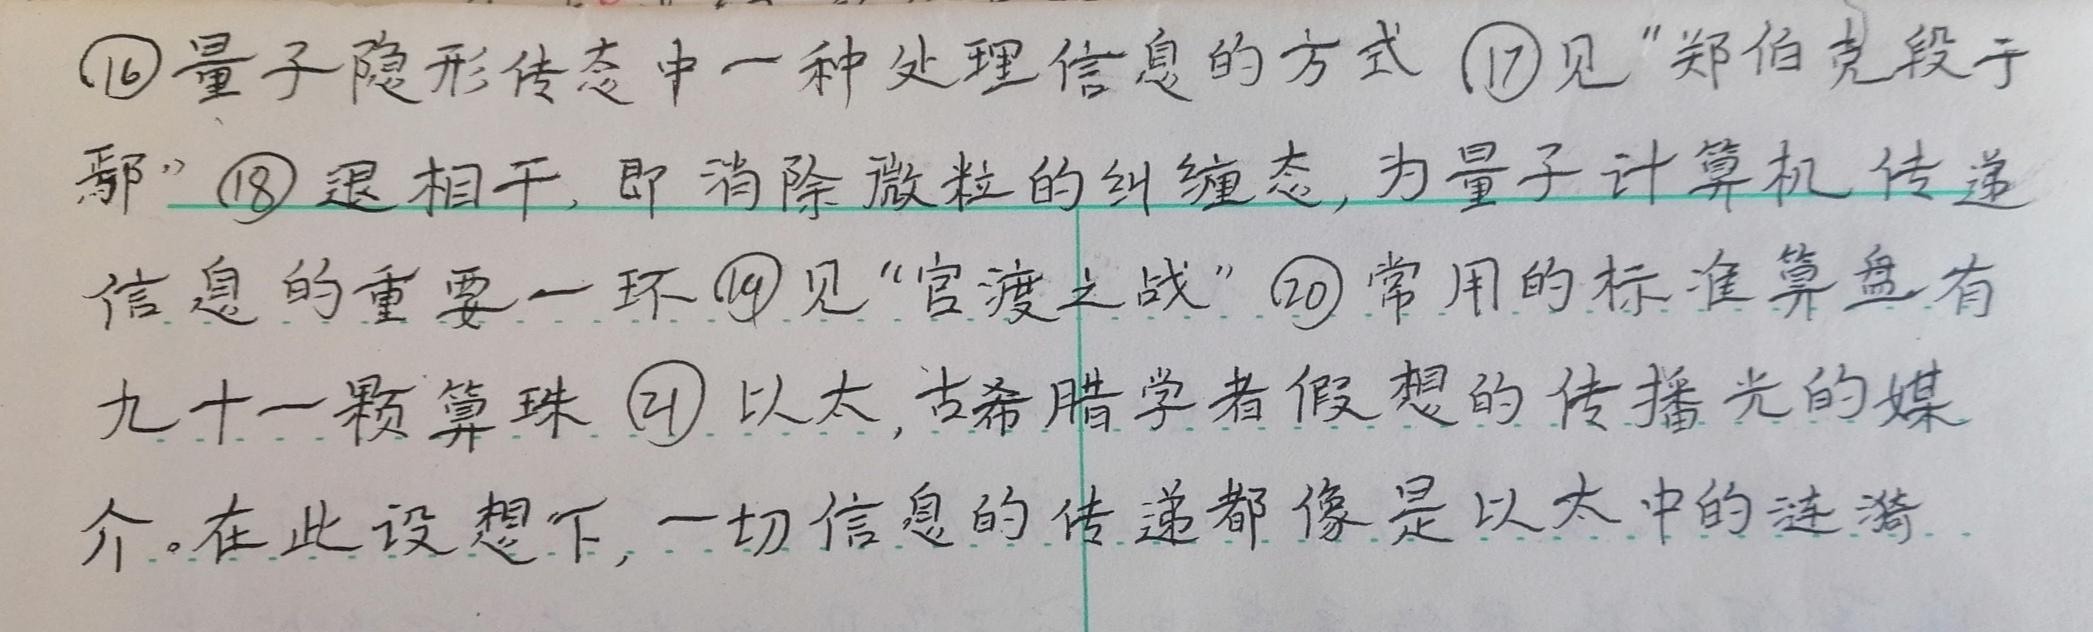 ⑯量子隐形传态中一种处理信息的方式 ⑰见“郑伯克段于
鄢” ⑱退相干，即消除微粒的纠缠态，为量子计算机传递
信息的重要一环 ⑲见“官渡之战” ⑳常用的标准算盘有
九十一颗算珠 ㉑以太，古希腊学者假想的传播光的媒
介。在此设想下，一切信息的传递都像是以太中的涟漪